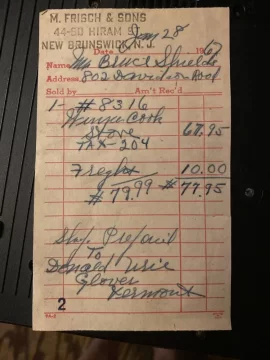 M. FRISCH & SONS
44-50 HIRAM S
NEW BRUNSWICK, N. J.
Date Jan 28 19
Name Mr Bruce Shields
Address 802 Davidson Rd
Sold by Am't Rec'd
1- #8316
Cook
Stove 67.95
TAX-204
Freght 10.00
#79.99 # 77.95
Ship Prepaid
To
Donald Urie
Glover
Vermont
2